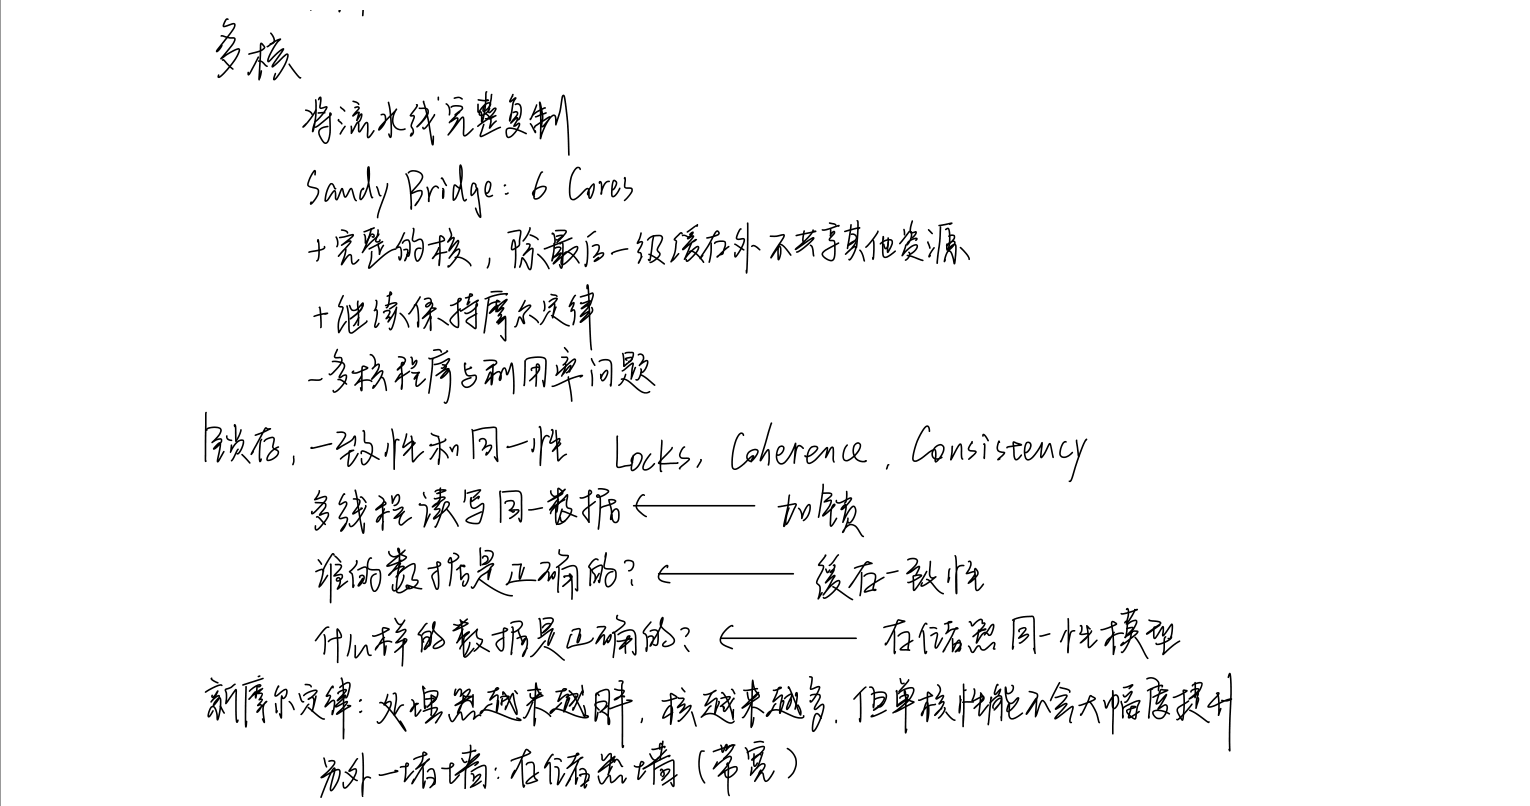 多核
将流水线完整复制
Sandy Bridge: 6 Cores
+完整的核，除最后一级缓存外不共享其他资源
+继续保持摩尔定律
-多核程序与利用率问题
锁存，一致性和同一性 Locks, Coherence, Consistency
多线程读写同一数据 ← 加锁
谁的数据是正确的? ← 缓存一致性
什么样的数据是正确的? ← 存储器同一性模型
新摩尔定律: 处理器越来越胖，核越来越多，但单核性能不会大幅度提升
另外一堵墙: 存储器墙 (带宽)